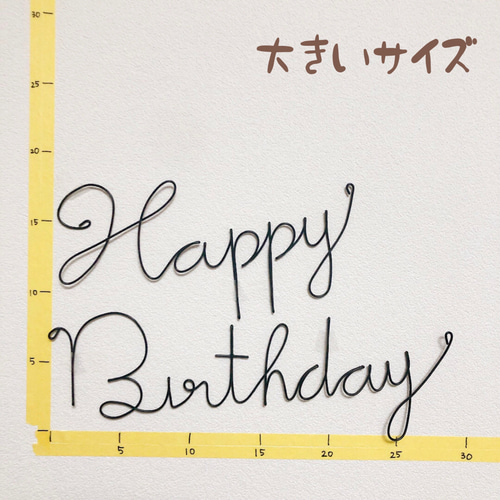 大きいサイズ
30
25
20
15
10
5
Happy
Birthday
5 10 15 20 25 30